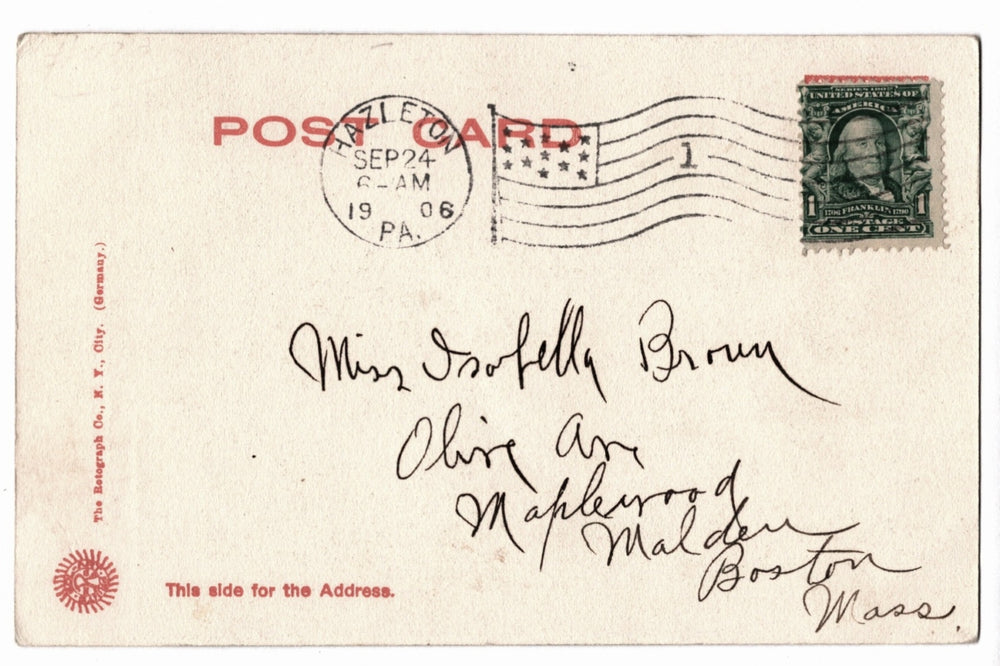 POST CARD
HAZLETON
SEP 24
6-AM
19 06
PA.
1
SERIES 1902
UNITED STATES OF
AMERICA
1 1
1706 FRANKLIN 1790
POSTAGE
ONE CENT
The Rotograph Co., N. Y., City. (Germany.)
Miss Isabella Brown
Olive Ave
Maplewood
Malden
Boston
Mass.
This side for the Address.